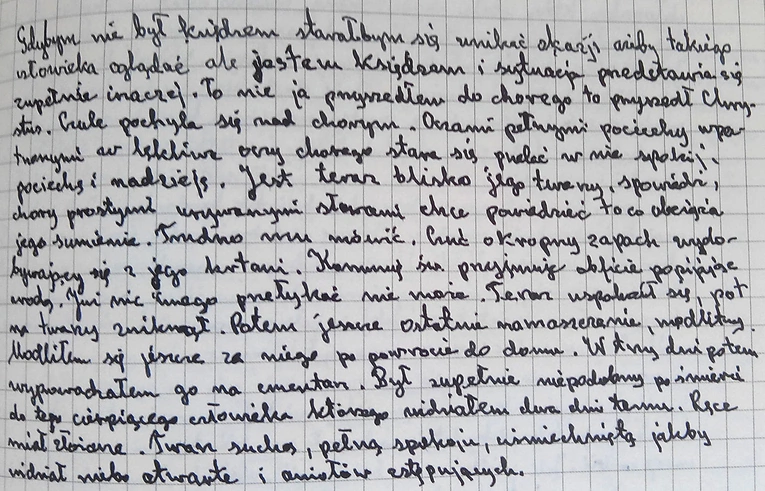 Gdybym nie był księdzem starałbym się unikać okazji ażeby takiego
człowieka oglądać ale jestem księdzem i sytuacja przedstawia się
zupełnie inaczej. To nie ja przyszedłem do chorego to przyszedł Chry-
stus. Czule pochyla się nad chorym. Oczami pełnymi pociechy wpa-
trzonymi w lękliwe oczy chorego stara się przelać w nie spokój,
pociechę i nadzieję. Jest teraz blisko jego twarzy, spowiedź,
chory prostymi urywanymi słowami chce powiedzieć to co obciąża
jego sumienie. Trudno mu mówić. Czuć okropny zapach wydo-
bywający się z jego krtani. Komunię św. przyjmuje obficie popijając
wodą. Już nic innego przełykać nie może. Teraz uspokoił się, pot
na twarzy zniknął. Potem jeszcze ostatnie namaszczenie, modlitwy.
Modliłem się jeszcze za niego po powrocie do domu. W trzy dni potem
wyprowadzałem go na cmentarz. Był zupełnie niepodobny po śmierci
do tego cierpiącego człowieka którego widziałem dwa dni temu. Ręce
miał złożone. Twarz suchą, pełną spokoju, uśmiechniętą jakby
widział niebo otwarte i aniołów zstępujących.